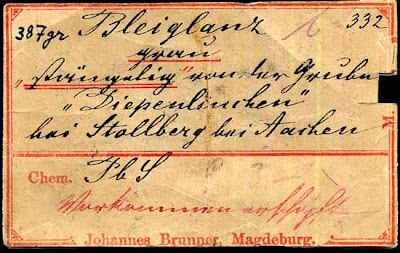 387gr Bleiglanz 332
grau
„stängelig" von der Grube
„Diepenlinchen"
bei Stollberg bei Aachen
Chem. PbS
Vorkommen erschöpft
M.
Johannes Brunner, Magdeburg.